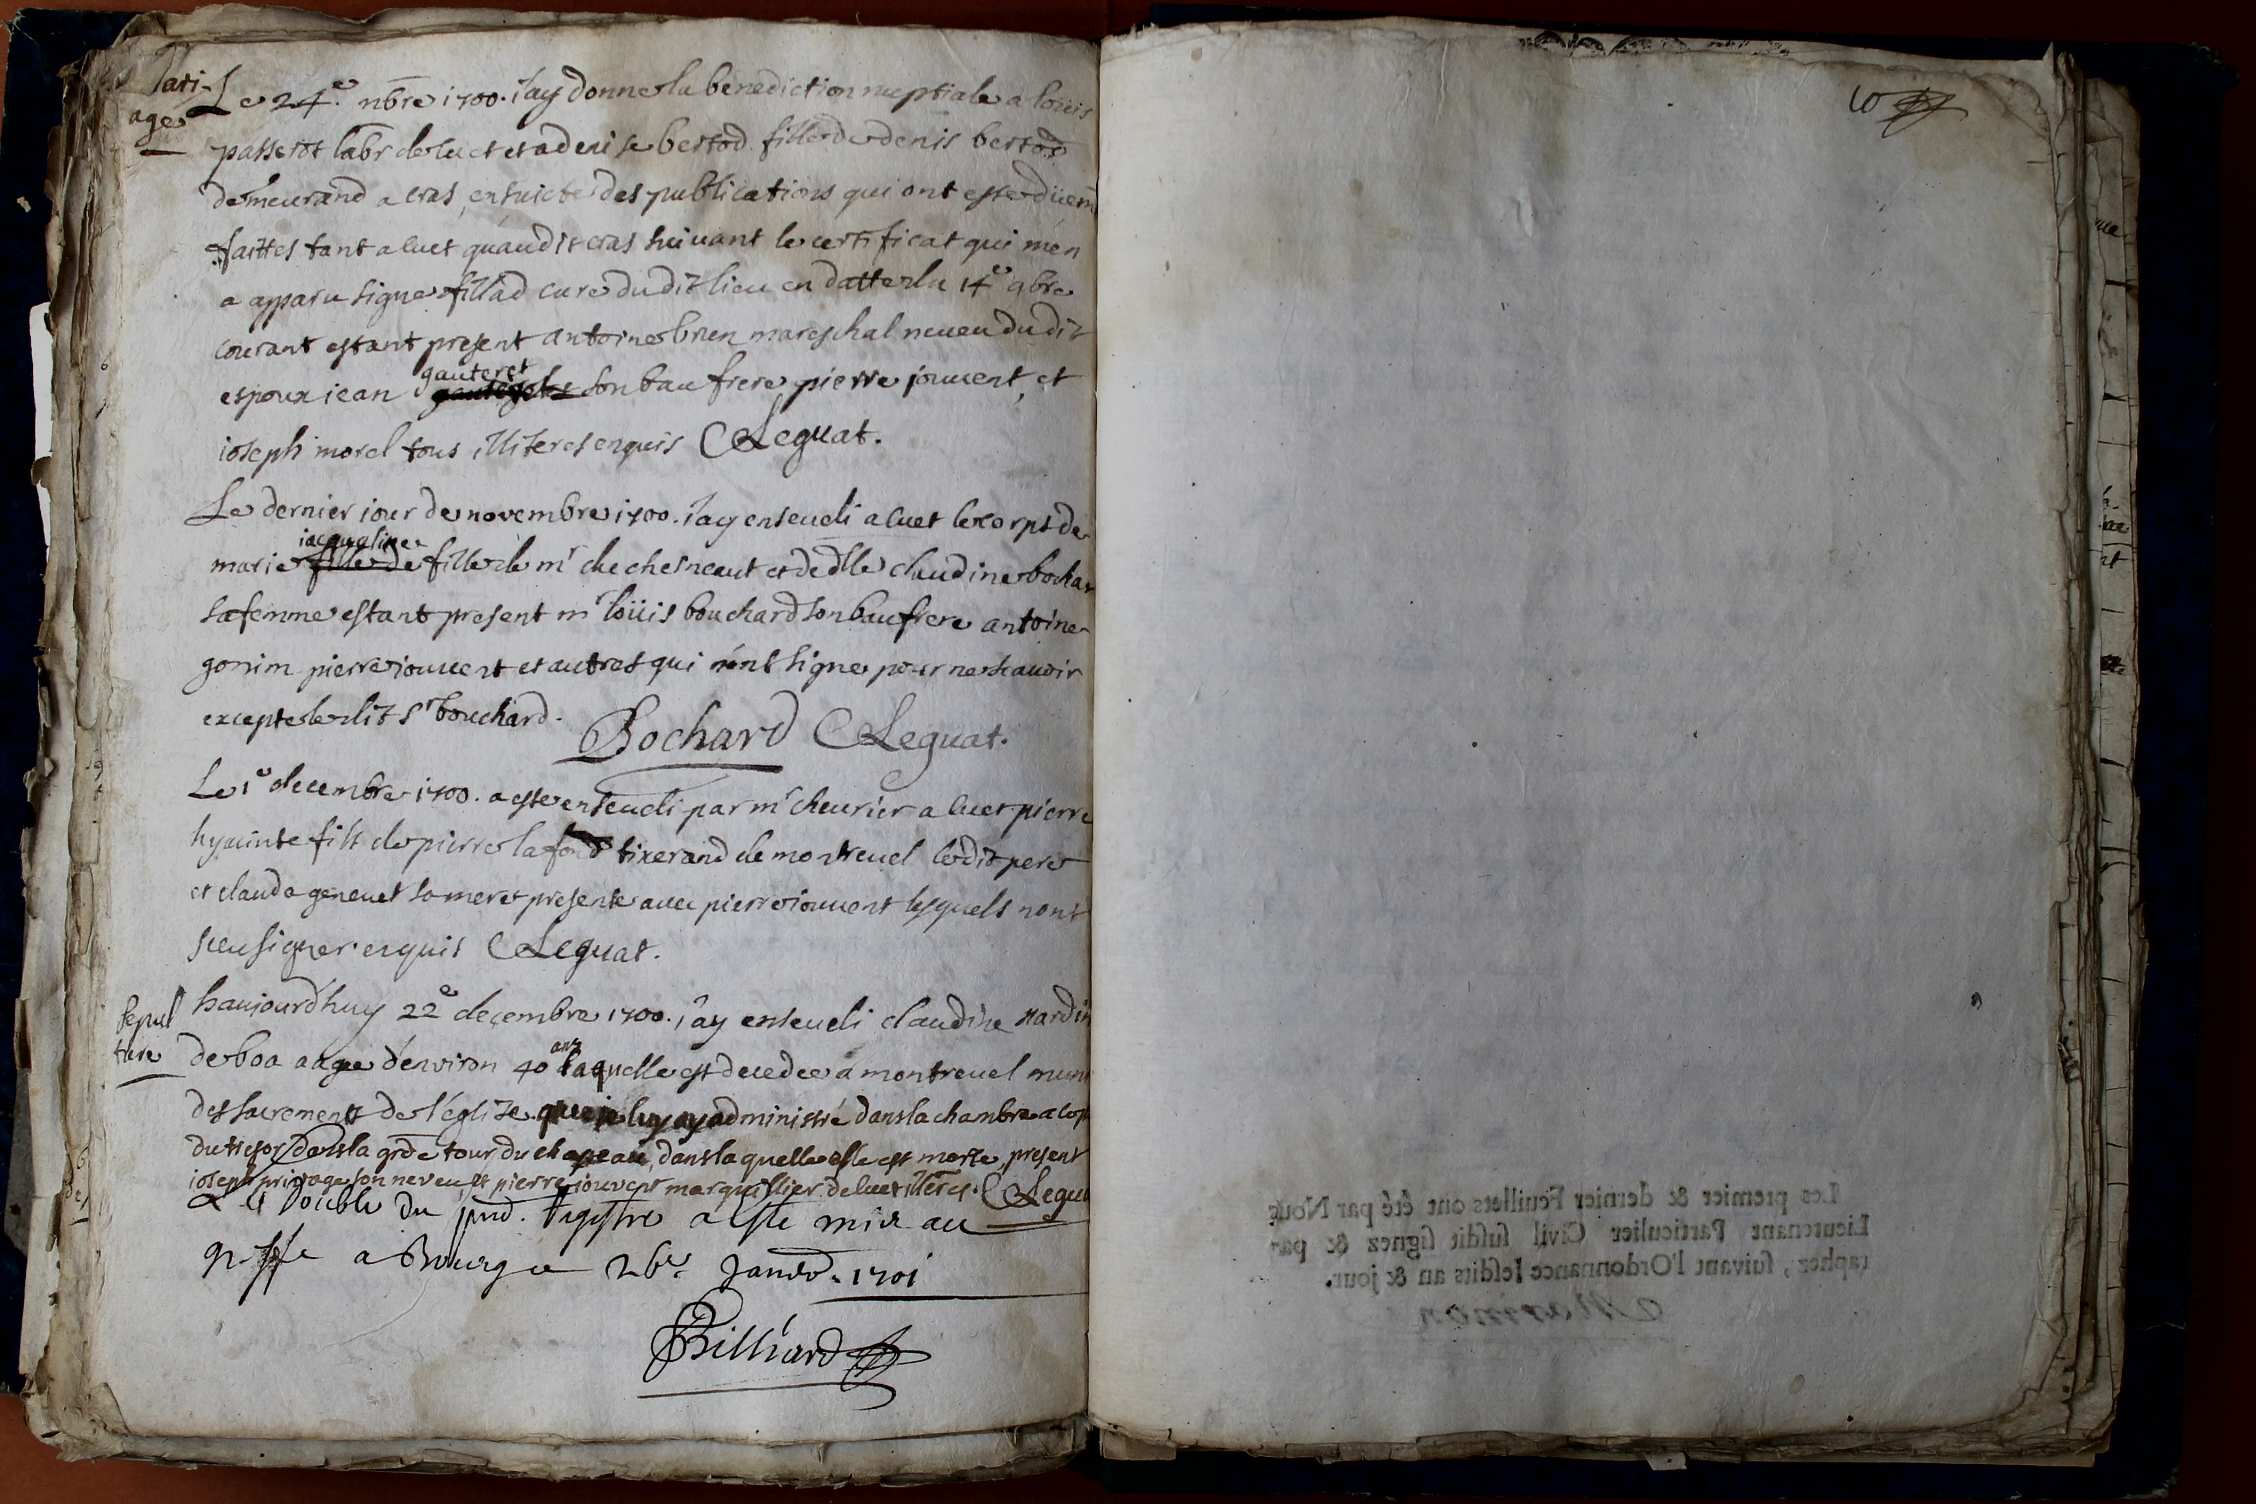 Mari-
age
Le 24e. nbre 1700. i'ay donne la benediction nuptiale a loüis
passerot labr de luet et a denise bertod fille de denis bertod
demeurand a cras, ensuicte des publications qui ont este düem
faittes tant a luet qu'audit cras suivant le certificat qui m'en
a apparu signe fillad cure dudit lieu en datte du 14e 9bre
courant estant present antoine brun mareschal neveu dudit
espoux iean gauteret son bau frere pierre jouvent, et
ioseph morel tous illiteres enquis CLeguat.
Le dernier iour de novembre 1700. i'ay enseveli a luet le corps de
marie iacqueline fille de mr de chesneaut et de dlle claudine bochar
sa femme estant present mr loüis bouchard son bau frere antoine
gonin pierre iouvent et autres qui n'ont signe pour ne scavoir
excepte le dit sr bouchard.
Bochard CLeguat.
Le 1e decembre 1700. a este enseveli par mr chevrier a luet pierre
hyacinte fils de pierre lafond tixerand de montrevel le dit pere
et claude genevet sa mere presente avec pierre iouvent lesquels n'ont
sceu signer enquis CLeguat.
Sepul
ture
haujourd'huy 22e decembre 1700. i'ay enseveli claudine nardin
de boa aagee d'environ 40 ans laquelle est decedee a montrevel muni
des sacrements de l'eglise que je luy ay administré dans la chambre a cos
du tresor dans la grde tour du chapeau, dans laquelle elle est morte, present
ioseph privage son neveu, et pierre jouvent marguillier de luet illeres. CLegua
Le double du pnd. Registre a este mis au
greffe a Bourg ce 26e. Janvr. 1701
Billiard
10
Les premier & dernier Feuillets ont été par Nous
Lieutenant Particulier Civil susdit signez & pa-
raphez, suivant l'Ordonnance lesdits an & jour.